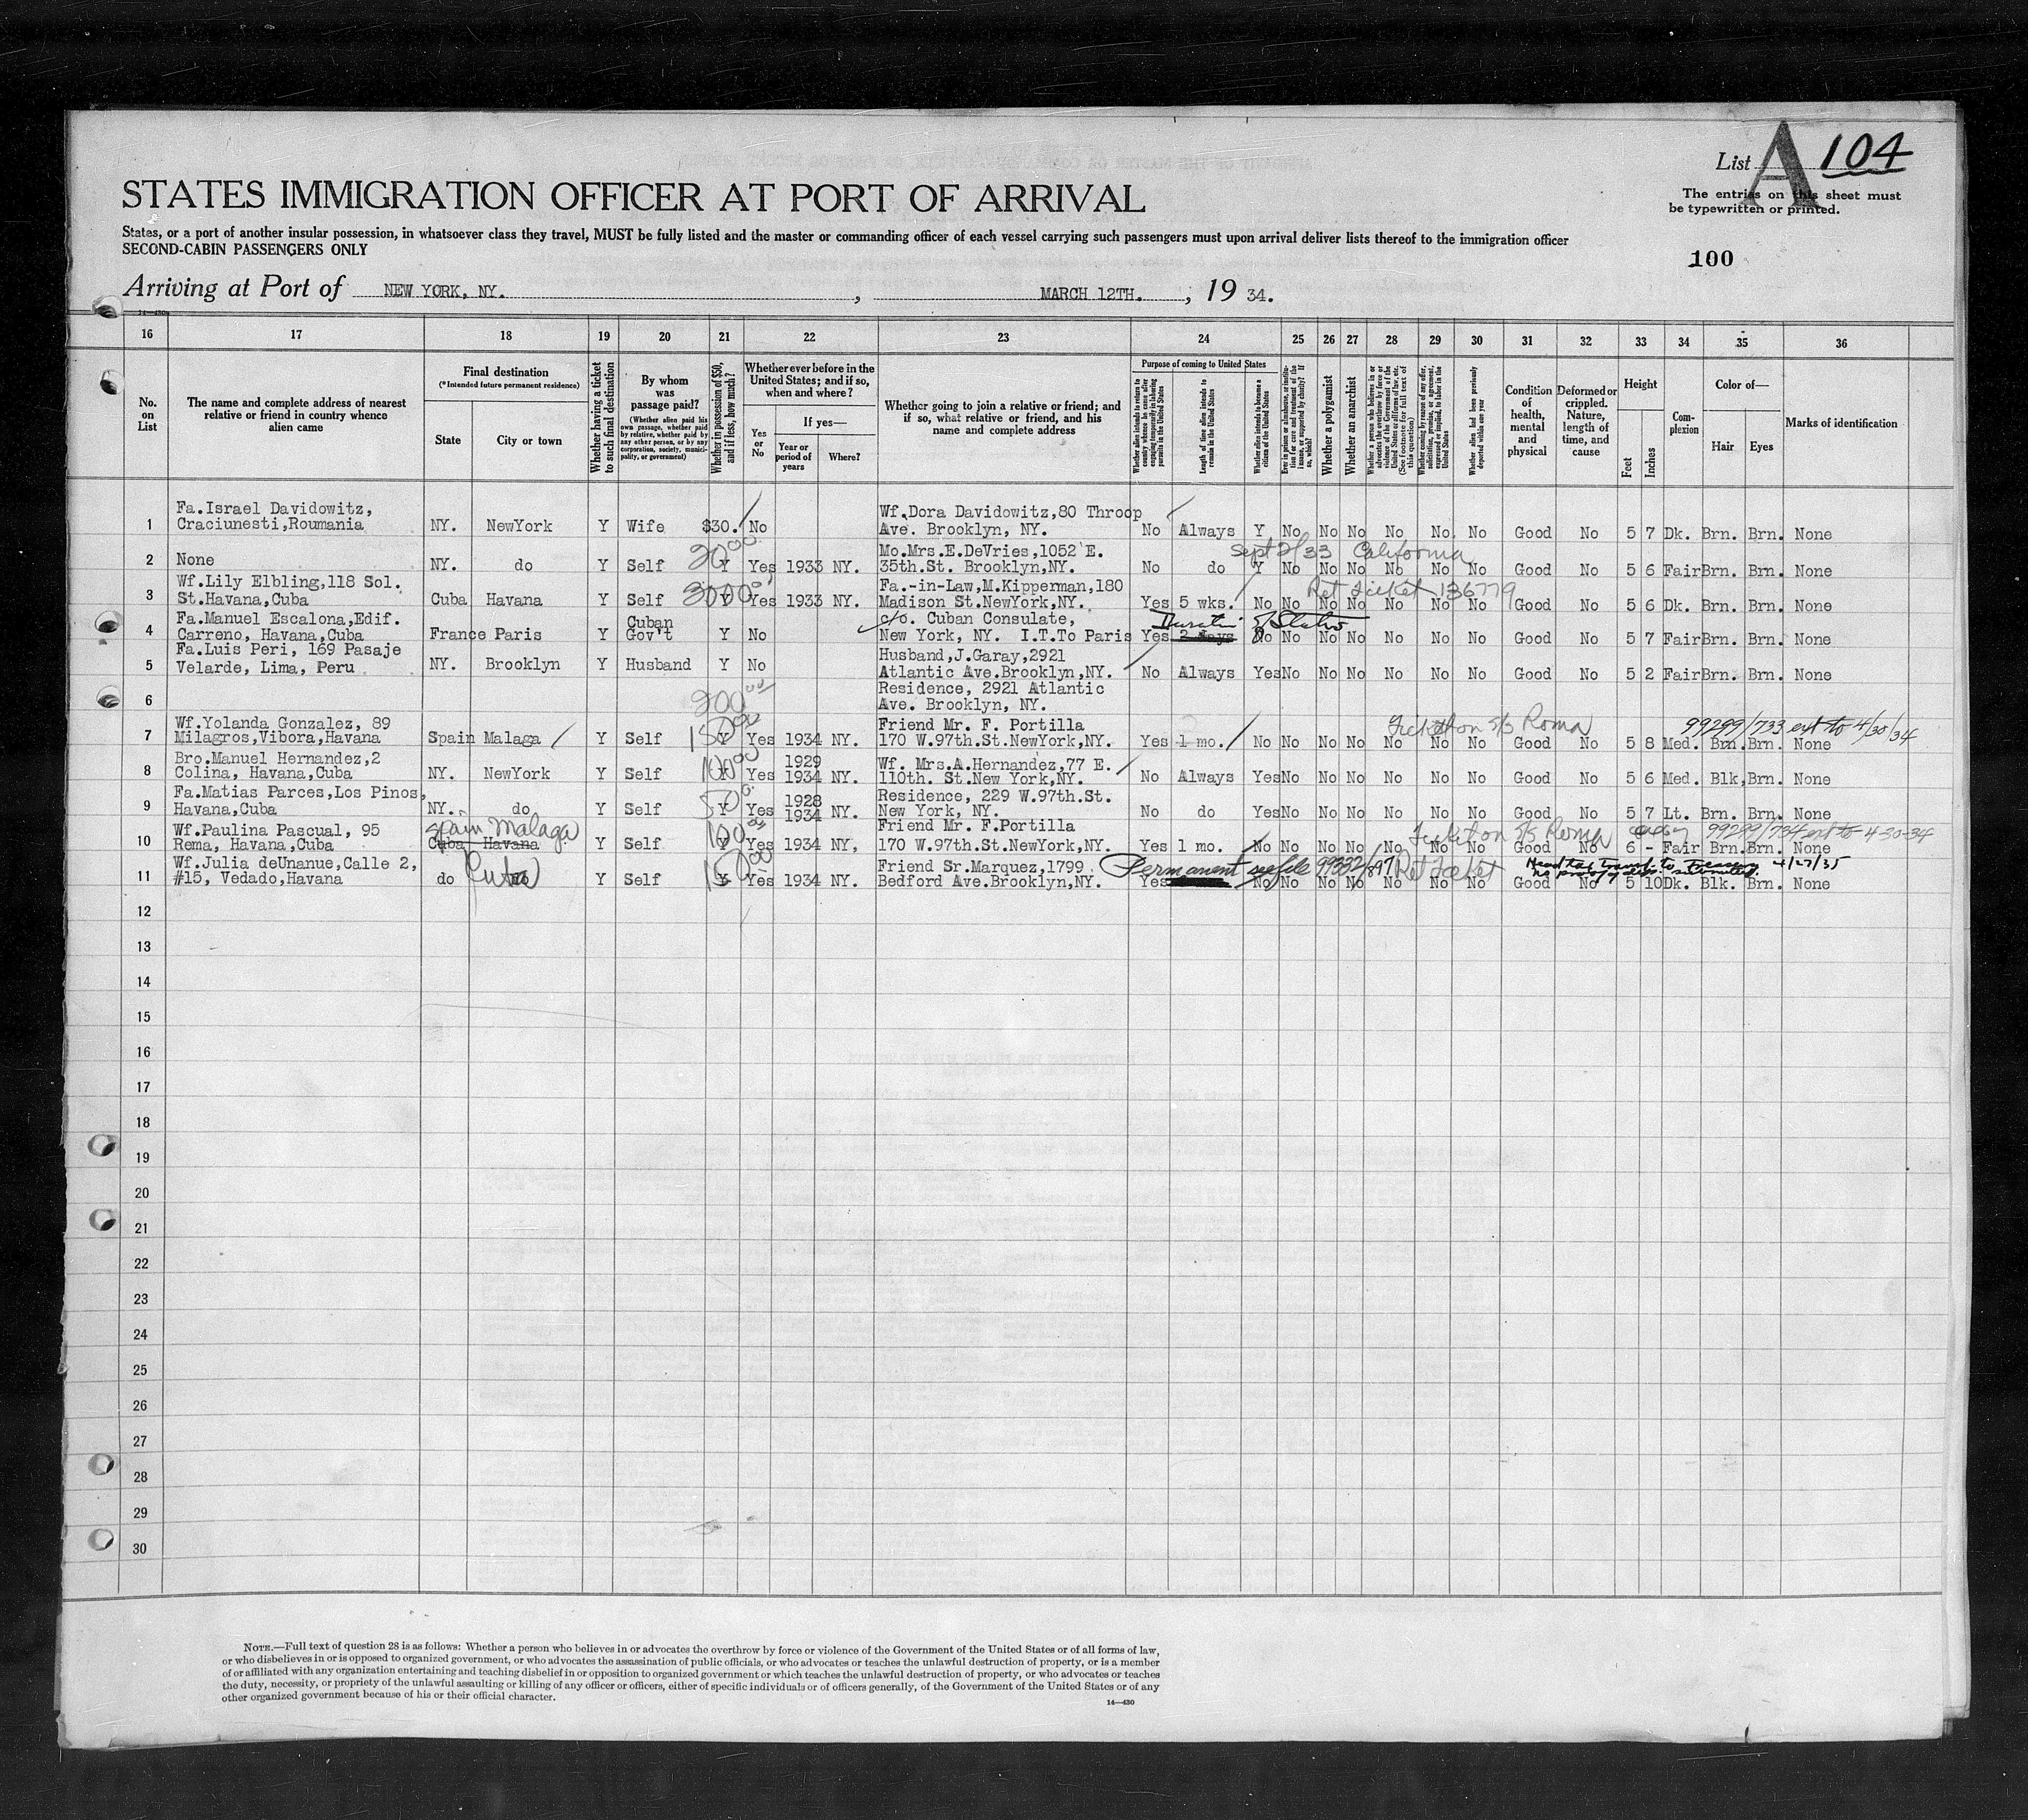 List A 104
The entries on this sheet must
be typewritten or printed.
STATES IMMIGRATION OFFICER AT PORT OF ARRIVAL
States, or a port of another insular possession, in whatsoever class they travel, MUST be fully listed and the master or commanding officer of each vessel carrying such passengers must upon arrival deliver lists thereof to the immigration officer
SECOND-CABIN PASSENGERS ONLY
100
Arriving at Port of NEW YORK, NY. , MARCH 12TH. , 19 34.
14—430
16 17 18 19 20 21 22 23 24 25 26 27 28 29 30 31 32 33 34 35 36
No. on List
The name and complete address of nearest relative or friend in country whence alien came
Final destination
(*Intended future permanent residence)
State
City or town
Whether having a ticket to such final destination
By whom was passage paid?
(Whether alien paid his own passage, whether paid by relative, whether paid by any other person, or by any corporation, society, municipality, or government)
Whether in possession of $50, and if less, how much?
Whether ever before in the United States; and if so, when and where?
Yes or No
If yes—
Year or period of years
Where?
Whether going to join a relative or friend; and if so, what relative or friend, and his name and complete address
Purpose of coming to United States
Whether alien intends to return to country whence he came after engaging temporarily in laboring pursuits in the United States
Length of time alien intends to remain in the United States
Whether alien intends to become a citizen of the United States
Ever in prison or almshouse, or institution for care and treatment of the insane, or supported by charity? If so, which?
Whether a polygamist
Whether an anarchist
Whether a person who believes in or advocates the overthrow by force or violence of the Government of the United States or all forms of law, etc. (See footnote for full text of this question)
Whether coming by reason of any offer, solicitation, promise, or agreement, expressed or implied, to labor in the United States
Whether alien had been previously deported within one year
Condition of health, mental and physical
Deformed or crippled. Nature, length of time, and cause
Height
Feet
Inches
Complexion
Color of—
Hair
Eyes
Marks of identification
Fa.Israel Davidowitz, Wf.Dora Davidowitz,80 Throop
1 Craciunesti,Roumania NY. NewYork Y Wife $30. No Ave. Brooklyn, NY. No Always Y No No No No No No Good No 5 7 Dk. Brn. Brn. None
20.00 Mo.Mrs.E.DeVries,1052 E. Sept 2/33 California
2 None NY. do Y Self Y Yes 1933 NY. 35th.St. Brooklyn,NY. No do Y No No No No No No Good No 5 6 Fair Brn. Brn. None
Wf.Lily Elbling,118 Sol. Fa.-in-Law,M.Kipperman,180 Ret Ticket 136779
3 St.Havana,Cuba Cuba Havana Y Self Yes 1933 NY. Madison St.NewYork,NY. Yes 5 wks. No No No No No No No Good No 5 6 Dk. Brn. Brn. None
Fa.Manuel Escalona,Edif. Cuban c/o. Cuban Consulate, Duration of Status
4 Carreno, Havana,Cuba France Paris Y Gov't Y No New York, NY. I.T.To Paris Yes 2 days No No No No No No No Good No 5 7 Fair Brn. Brn. None
Fa.Luis Peri, 169 Pasaje Husband,J.Garay,2921
5 Velarde, Lima, Peru NY. Brooklyn Y Husband Y No Atlantic Ave.Brooklyn,NY. No Always Yes No No No No No No Good No 5 2 Fair Brn. Brn. None
Residence, 2921 Atlantic
6 200.00 Ave. Brooklyn, NY.
Wf.Yolanda Gonzalez, 89 150.00 Friend Mr. F. Portilla Ticket on S/S Roma 99299/733 ext to 4/30/34
7 Milagros,Vibora,Havana Spain Malaga Y Self Y Yes 1934 NY. 170 W.97th.St.NewYork,NY. Yes 1 mo. No No No No No No No Good No 5 8 Med. Brn. Brn. None
Bro.Manuel Hernandez,2 100.00 1929 Wf. Mrs.A.Hernandez,77 E.
8 Colina, Havana,Cuba NY. NewYork Y Self Y Yes 1934 NY. 110th. St.New York,NY. No Always Yes No No No No No No Good No 5 6 Med. Blk. Brn. None
Fa.Matias Parces,Los Pinos, 1928 Residence, 229 W.97th.St.
9 Havana,Cuba NY. do Y Self Y Yes 1934 NY. New York, NY. No do Yes No No No No No No Good No 5 7 Lt. Brn. Brn. None
Wf.Paulina Pascual, 95 Spain Malaga 100.00 Friend Mr. F.Portilla Ticket on S/S Roma 99299/734 ext to 4-30-34
10 Rema, Havana,Cuba Cuba Havana Y Self Yes 1934 NY, 170 W.97th.St.NewYork,NY. Yes 1 mo. No No No No No No No Good No 6 - Fair Brn. Brn. None
Wf.Julia deUnanue,Calle 2, Cuba 150.00 Friend Sr.Marquez,1799 Permanent see file 99332/897 Ret Ticket Head tax transf. to Treasury 4/27/35
11 #15, Vedado,Havana do do Y Self Y Yes 1934 NY. Bedford Ave.Brooklyn,NY. Yes No No No No No No No Good No 5 10 Dk. Blk. Brn. None
12
13
14
15
16
17
18
19
20
21
22
23
24
25
26
27
28
29
30
NOTE.—Full text of question 28 is as follows: Whether a person who believes in or advocates the overthrow by force or violence of the Government of the United States or of all forms of law,
or who disbelieves in or is opposed to organized government, or who advocates the assassination of public officials, or who advocates or teaches the unlawful destruction of property, or is a member
of or affiliated with any organization entertaining and teaching disbelief in or opposition to organized government or which teaches the unlawful destruction of property, or who advocates or teaches
the duty, necessity, or propriety of the unlawful assaulting or killing of any officer or officers, either of specific individuals or of officers generally, of the Government of the United States or of any
other organized government because of his or their official character.
14—430